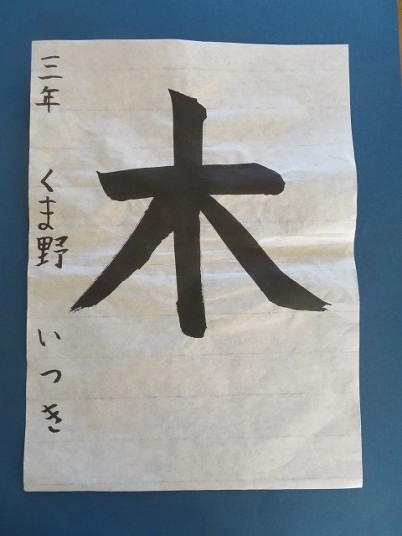 木
三年 くま野 いつき